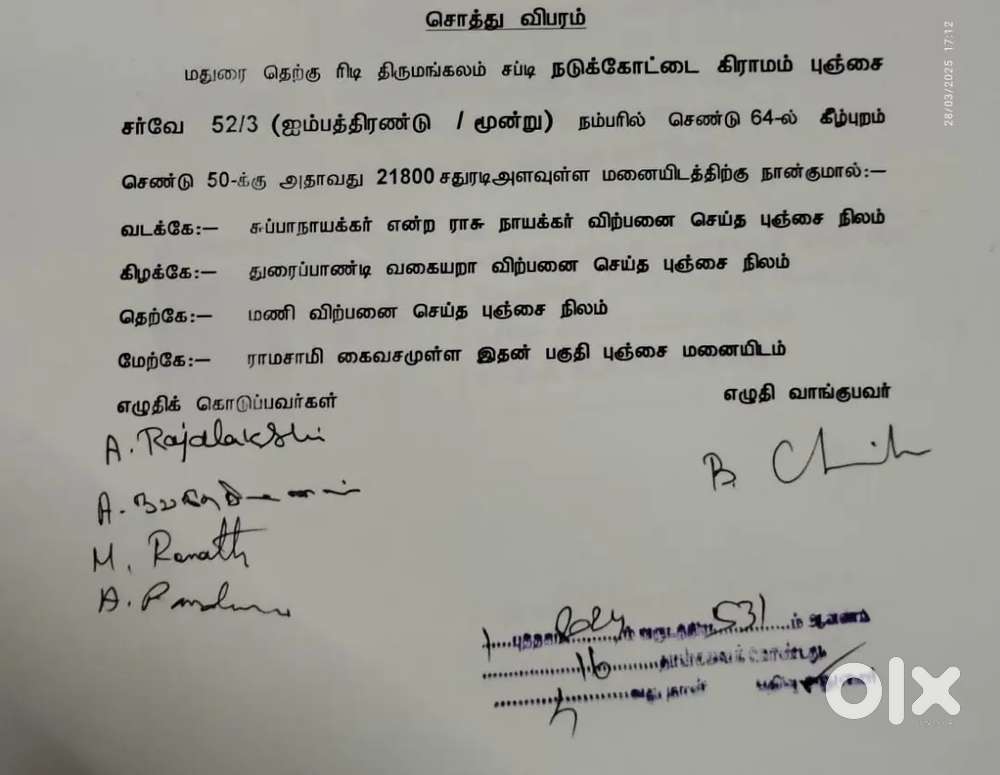 சொத்து விபரம்
மதுரை தெற்கு ரிடி திருமங்கலம் சப்டி நடுக்கோட்டை கிராமம் புஞ்சை
சர்வே 52/3 (ஐம்பத்திரண்டு / மூன்று) நம்பரில் செண்டு 64-ல் கீழ்புறம்
செண்டு 50-க்கு அதாவது 21800 சதுரடிஅளவுள்ள மனையிடத்திற்கு நான்குமால்:–
வடக்கே:– சுப்பாநாயக்கர் என்ற ராசு நாயக்கர் விற்பனை செய்த புஞ்சை நிலம்
கிழக்கே:– துரைப்பாண்டி வகையறா விற்பனை செய்த புஞ்சை நிலம்
தெற்கே:– மணி விற்பனை செய்த புஞ்சை நிலம்
மேற்கே:– ராமசாமி கைவசமுள்ள இதன் பகுதி புஞ்சை மனையிடம்
எழுதிக் கொடுப்பவர்கள் எழுதி வாங்குபவர்
A. Rajalakshi
B.
A.
M.
A.
1 புத்தகம் 2024 ம் வருடத்திய 531 ம் ஆவணம்
16
28/03/2025 17:12
olx